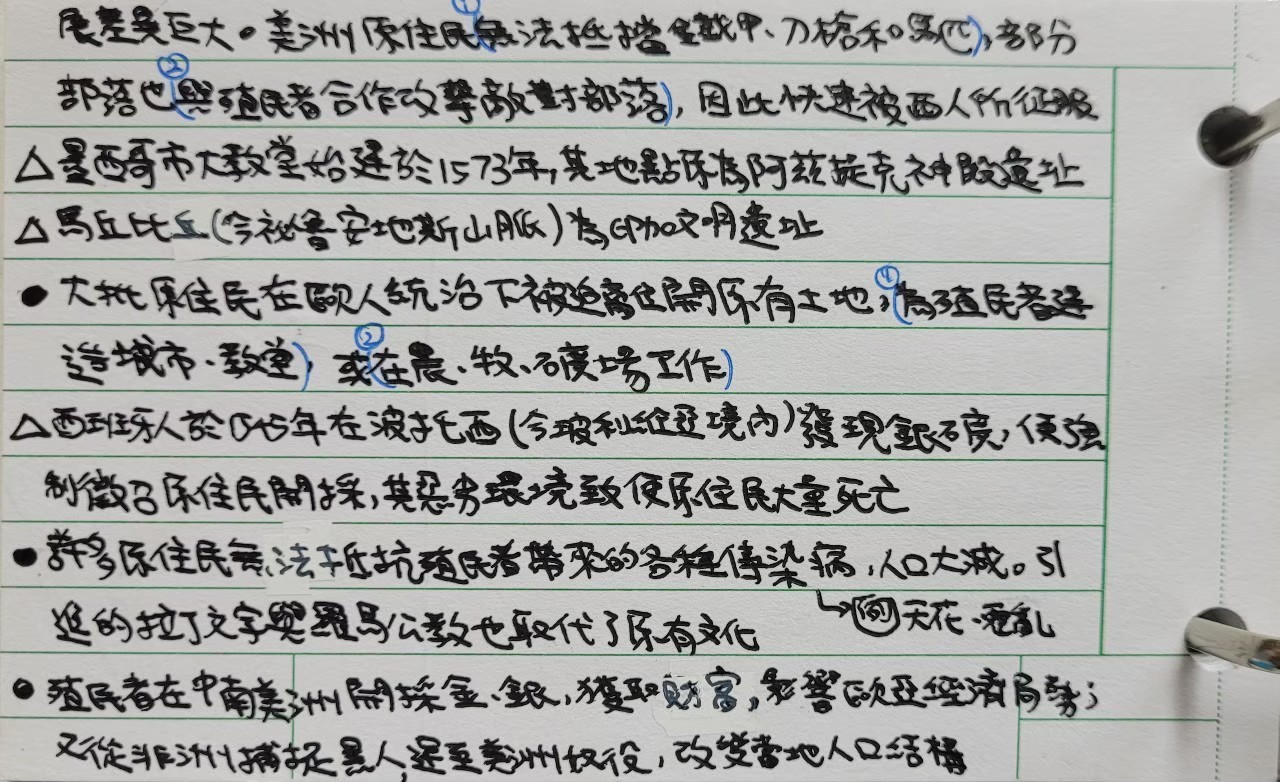 展差異巨大。美洲原住民①(無法抵擋盔戰甲、刀槍和馬匹),部分
部落也②(與殖民者合作攻擊敵對部落),因此快速被西人所征服
△墨西哥市大教堂始建於1573年,其地點原為阿茲提克神殿遺址
△馬丘比丘(今祕魯安地斯山脈)為印加文明遺址
●大批原住民在歐人統治下被迫離開原有土地,④(為殖民者建
造城市、教堂),或②(在農、牧、礦場工作)
△西班牙人於1545年在波托西(今玻利維亞境內)發現銀礦,便強
制徵召原住民開採,其惡劣環境致使原住民大量死亡
●許多原住民無法抵抗殖民者帶來的各種傳染病,人口大減。引
↳例天花、霍亂
進的拉丁文字與羅馬公教也取代了原有文化
●殖民者在中南美洲開採金、銀,獲取財富,影響歐亞經濟局勢;
又從非洲捕捉黑人,運至美洲奴役,改變當地人口結構